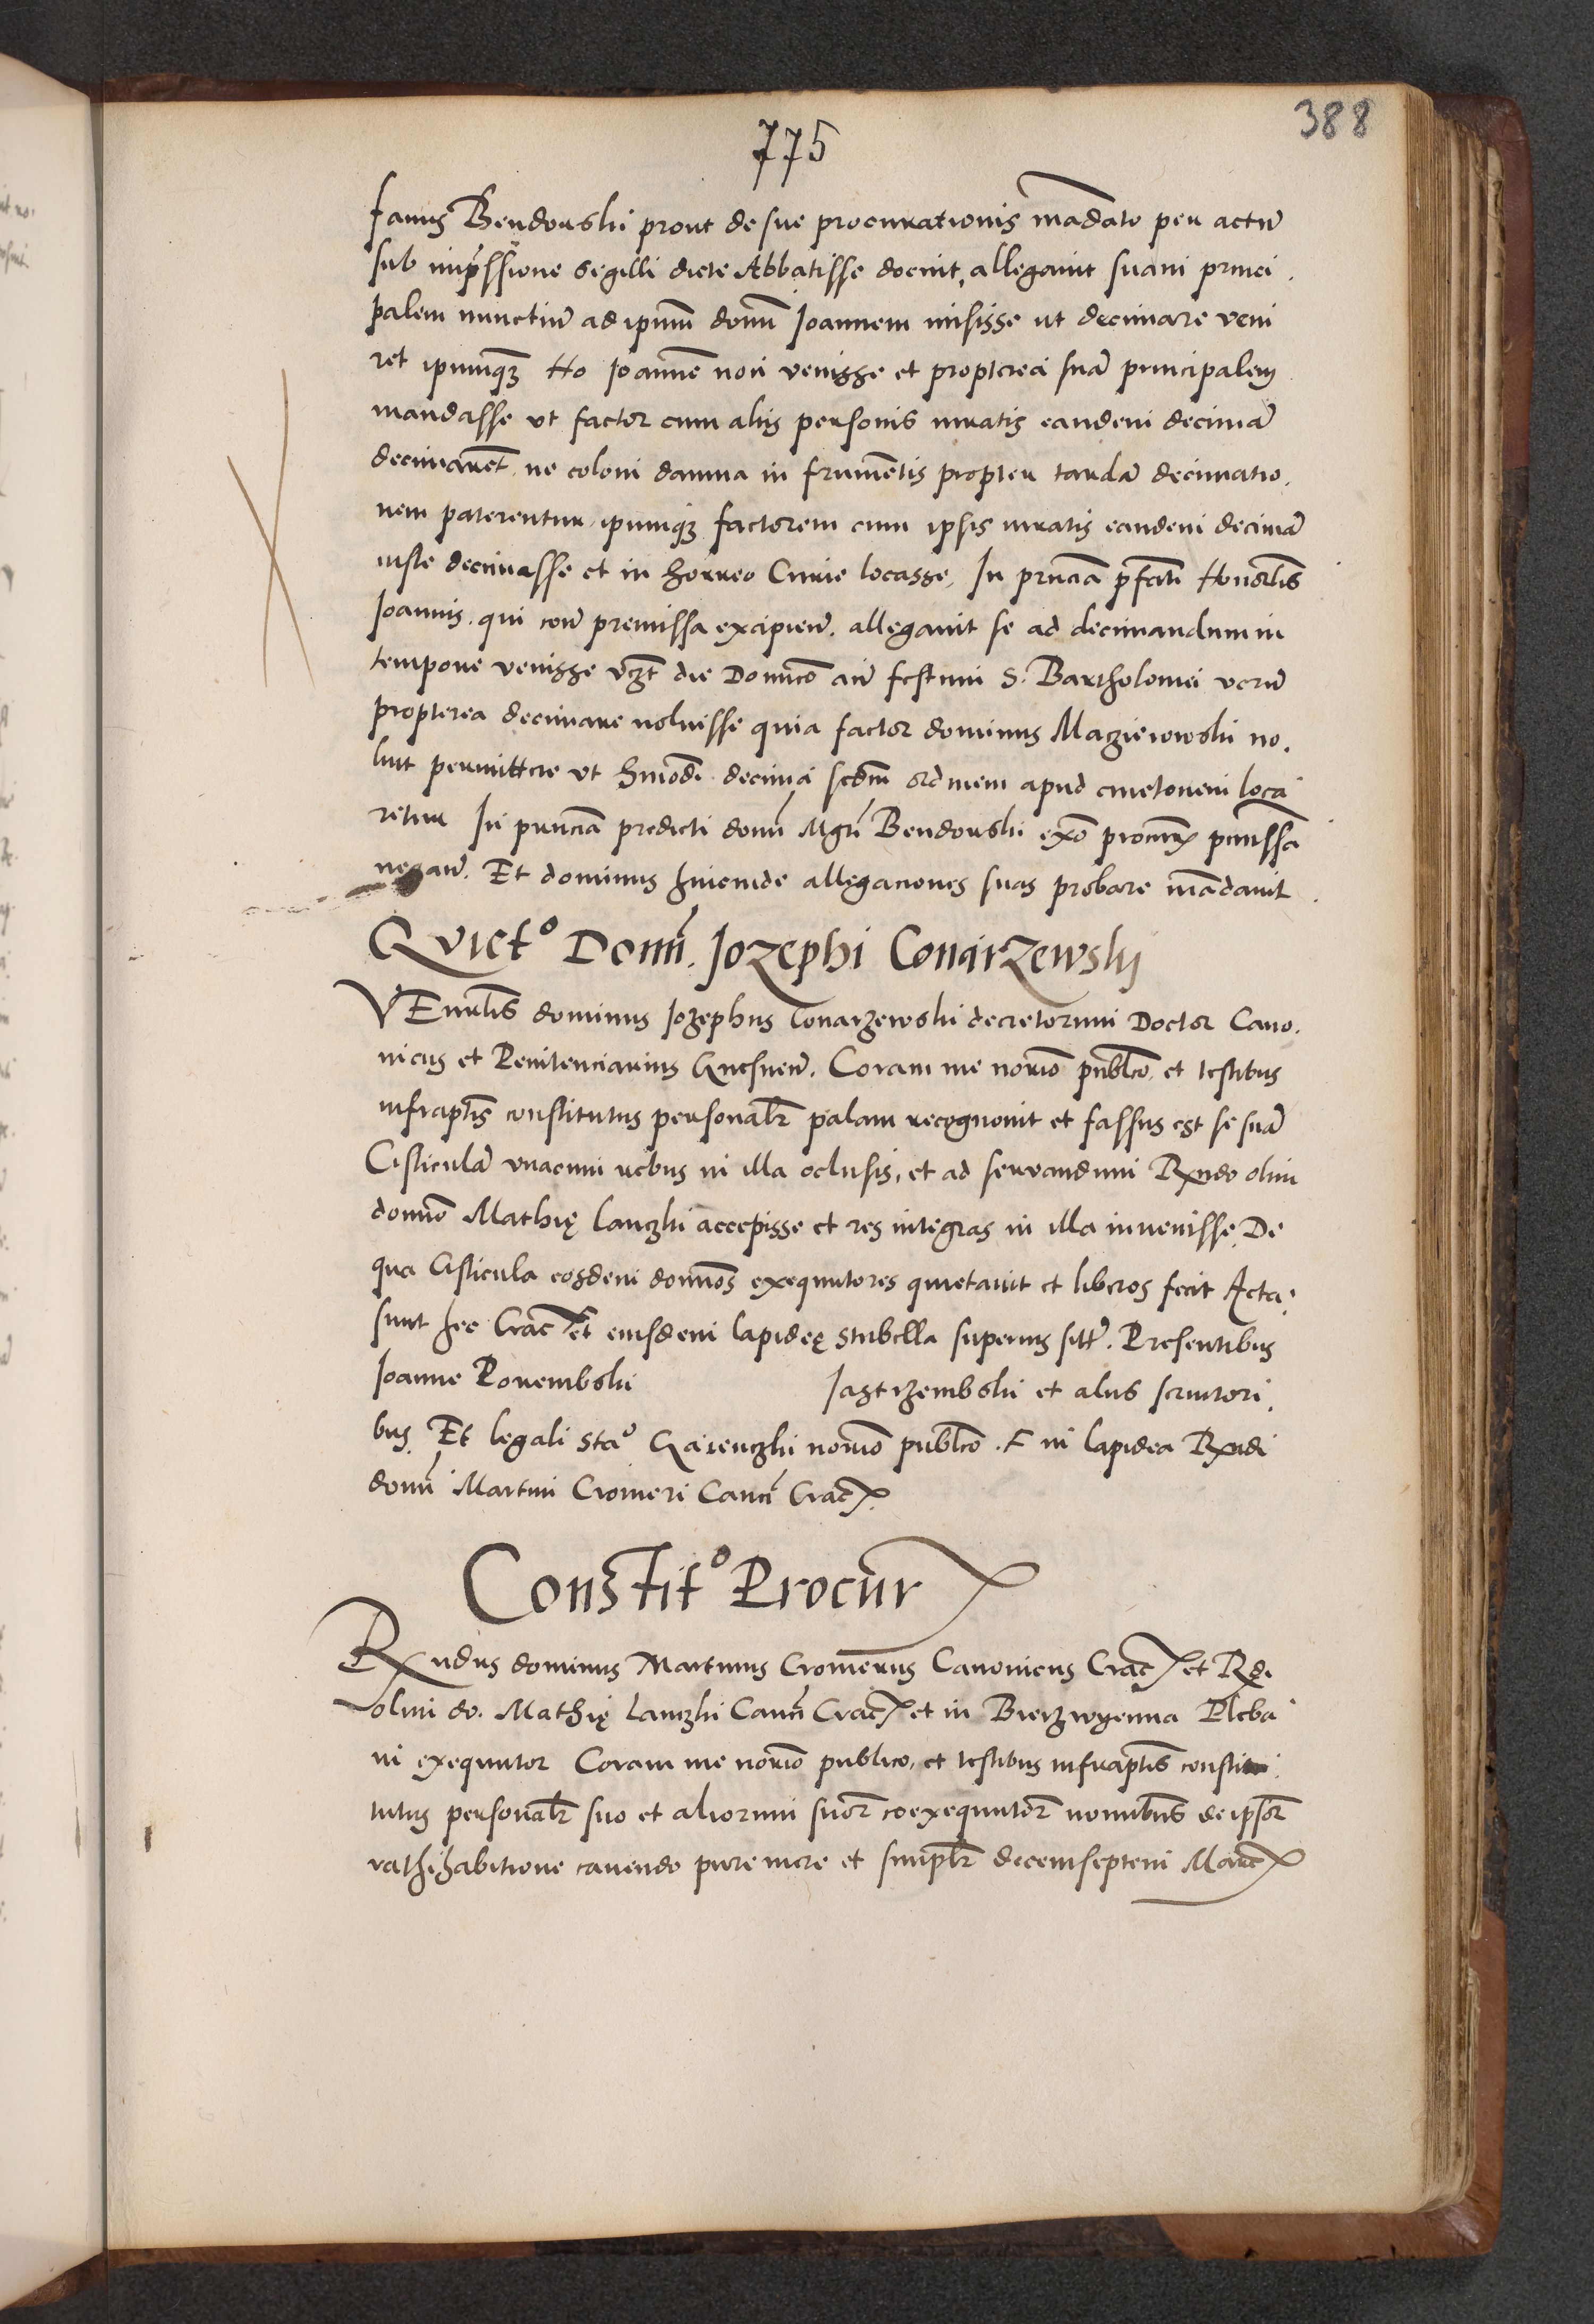 388
775
famus Bendorski prout de sue procurationis mādato per actū
sub imp̄ssione segilli dicte Abbatisse docuit, allegauit suam princi
palem nunctiū ad ipm̄ donū Joannem misisse ut decimare veni
ret ipumqꝫ Ho Joannē non venisse et propterea suā principalem
mandasse vt factor cum alijs personis iuratis eandem decimā
decimarēt ne coloni damna in frumētis propter tardā decimatio
nem paterentur, ipumqꝫ factorem cum ipsis iuratis eandem decimā
iuste decimasse et in horreo Curie locasse, In pn̄ciā p̄fati Honorlis
Joannis. qui con̄ premissa excipien̄. allegauit se ad decimandum in
tempore venisse vꝫt die Domīco an̄ festum S. Bartholomei verū
propterea decimare noluisse quia factor dominus Maziewowski no.
luit permittere vt hmōdi decima scdm̄ ordinem apud cmetonem loca
retur In pn̄ciā predicti domī Mgrī Bendorski exō procur̄ pm̄issa
negan̄. Et dominus hincinde allegaciones suas probare mādauit
Quiet° Domī. Jozephi Conarzewskj
VEnerlis dominus Jozephus Conarzewski decretorum Doctor Cano.
nicus et Penitenciarius Gnesnen̄. Coram me notrio publco, et testibus
infraptis constitutus personalr palam recognouit et fassus est se suā
Cisticulā vnacum rebus in illa oclusis, et ad servandum Rxndo olim
domīo Mathię Lanczki accepisse et res integras in illa inuenisse. De
qua Cisticula eosdem domīos exequutores quietauit et liberos fecit Acta
sunt hec Crac̄ et eiusdem lapideę stubella superius sitt̄. Presentibus
Joanne Porembski Jastrzembski et alijs scriptori.
bus. Et legali Sta° Gaienczki notrio publco. F in lapidea Rxndi
domī Martini Cromeri Canci Crac̄.
Constit° Procur̄
Rxndus dominus Martinus Cromerus Canonicus Crac̄ et Rdi
olim do. Mathię Lanczki Canci Crac̄ et in Bierzwyenna Pleba
ni exequutor Coram me notrio publico, et testibus infraptis consti
tutus personalr suo et aliorum suor̄ coexequutor̄ nominibus de ipsor̄
rathihabitione cauendo pure mere et simplr decemseptem Marc̄